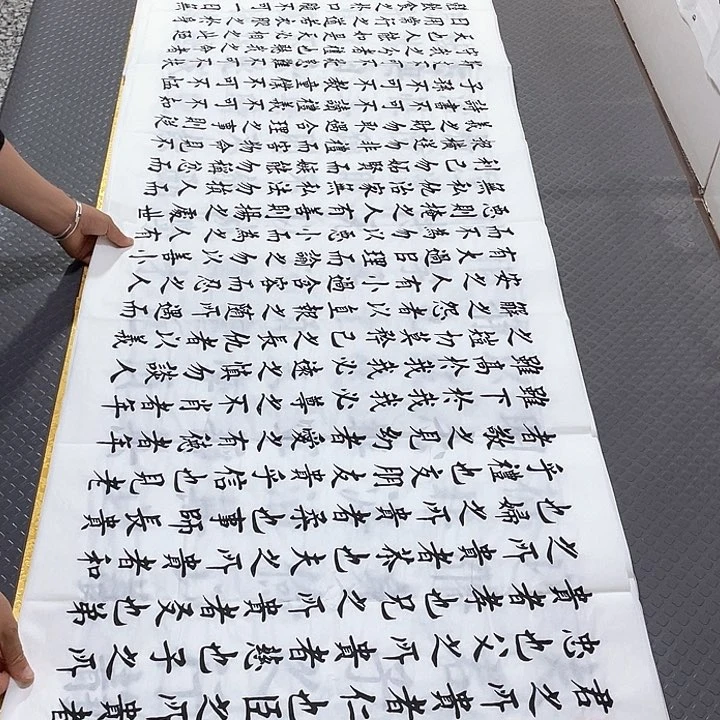 君之所貴者仁也臣之所貴者
忠也父之所貴者慈也子之所
貴者孝也兄之所貴者友也弟
之所貴者恭也夫之所貴者和
也婦之所貴者柔也事師長貴
乎禮也交朋友貴乎信也見老
者敬之見幼者愛之有德者年
雖下於我我必尊之不肖者年
雖高於我我必遠之慎勿談人
之短切莫矜己之長仇者以義
解之怨者以直報之隨所遇而
安之人有小過含容而忍之人
有大過以理而諭之勿以善小
而不為勿以惡小而為之人有
惡則掩之人有善則揚之處世
無私仇治家無私法勿損人而
利己勿妒賢而嫉能勿稱忿而
報橫逆勿非禮而害物命見不
義之財勿取遇合理之事則從
詩書不可不讀禮義不可不知
子孫不可不教童僕不可不恤
斯文不可不敬患難不可不扶
守我之分者禮也聽我之命者
天也人能如是天必相之
日用常行之道若衣服之於身
體飲食之於口腹不可一日無